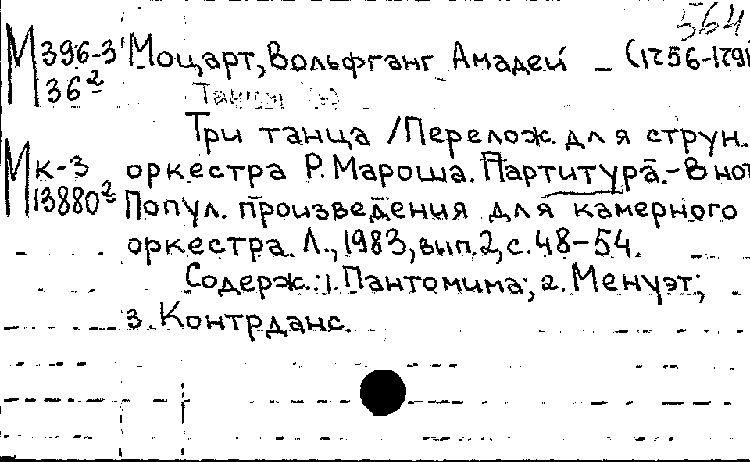 564
М 396-3 Моцарт, Вольфганг Амадей – (1756-1791
36²
Танцы
Три танца / Перелож. для струн.
М к-3 оркестра Р. Мароша. Партитура. – В нот
13880² Попул. произведения для камерного
оркестра. Л., 1983, вып. 2, с. 48–54.
Содерж.: 1. Пантомима; 2. Менуэт;
3. Контрданс.